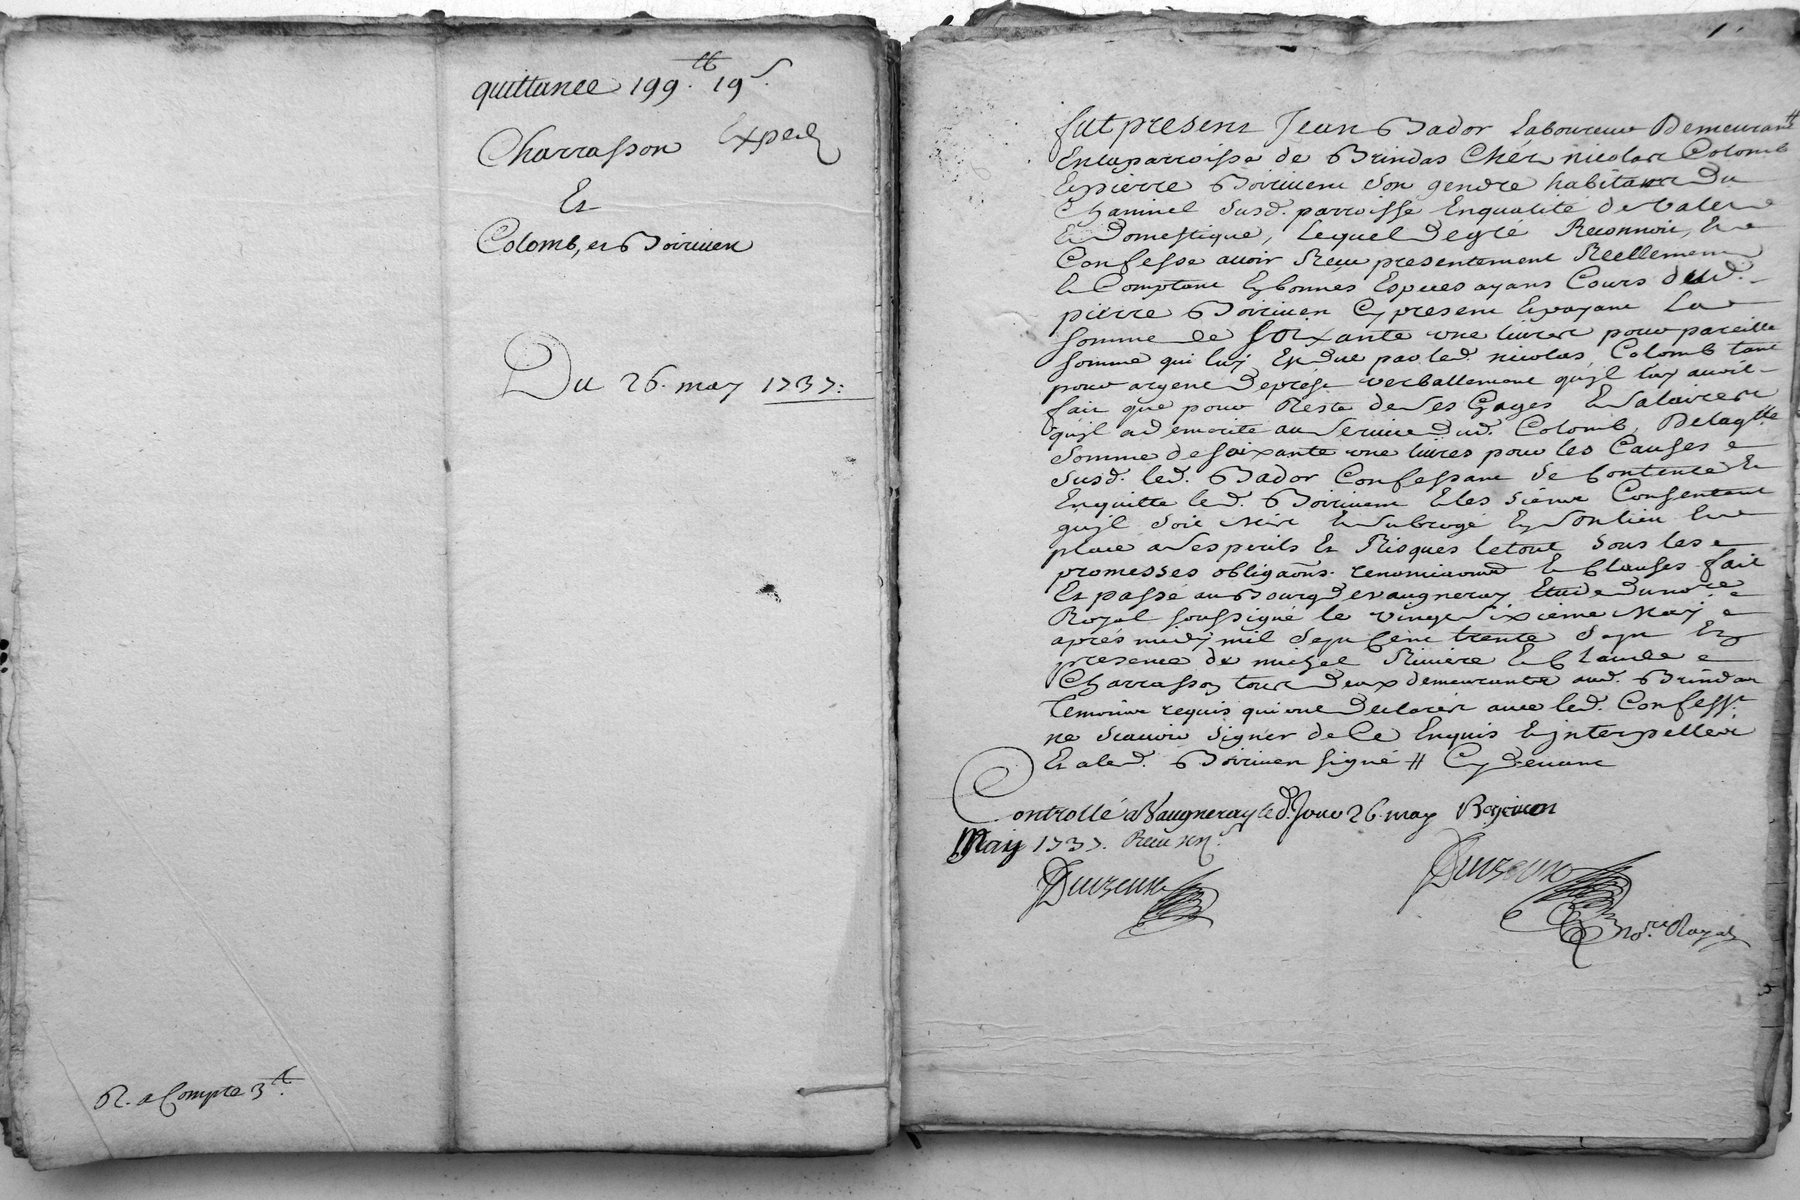 quittance 199.ᵗᵗ 19ˢ.
Charrasson Exped
Et
Colomb, et Boiriven
Du 26. may 1737:
R. a Compte 3ᵗᵗ.
1.
fut present Jean Bador Laboureur Demeurant
En la parroisse de Brindas Chés nicolas Colomb
Et pierre Boiriven Son gendre habitans Du
Susd. parroisse En qualité de valet
Et Domestique, Lequel De gré Reconnoit, Et
Confesse avoir Receu presentement Reellement
Et Comptant En bonnes Especes ayans Cours dud.
pierre Boiriven Cy present Et payant La
Somme de Soixante une livres pour pareille
Somme qui luy Est due par led. nicolas Colomb tant
pour argent De prest verballement qu'il luy avoit
fait que pour Reste de Ses Gages Et Salaires
qu'il a demerité au Service Dud. Colomb, De laqᵗˡᵉ
Somme de Soixante une livres pour les Causes
Susd. led. Bador Confessant Se Contente Et
En quitte led. Boiriven Et les Siens Consentant
qu'il Soit mis Et Subrogé En Son lieu Et
place a Ses perils Et Risques le tout Sous les
promesses obligaōns. Et Clauses fait
Et passé au Bourg de vaugneray Etude du noʳᵉ
Royal soussigné le vingt Sixieme May
aprés midy mil Sept Cent trente Sept En
presence de michel Riviere Et Claude
Charrasson tous Deux demeurants aud. Brindas
temoins requis qui ont Declarés avec led. Confessᵗ
ne Scavoir Signer de Ce Enquis Et interpellés
Et a led. Boiriven signé
Controllé a Vaugneray le d. Jour 26. may
May 1737. Receu
noʳᵉ Royal